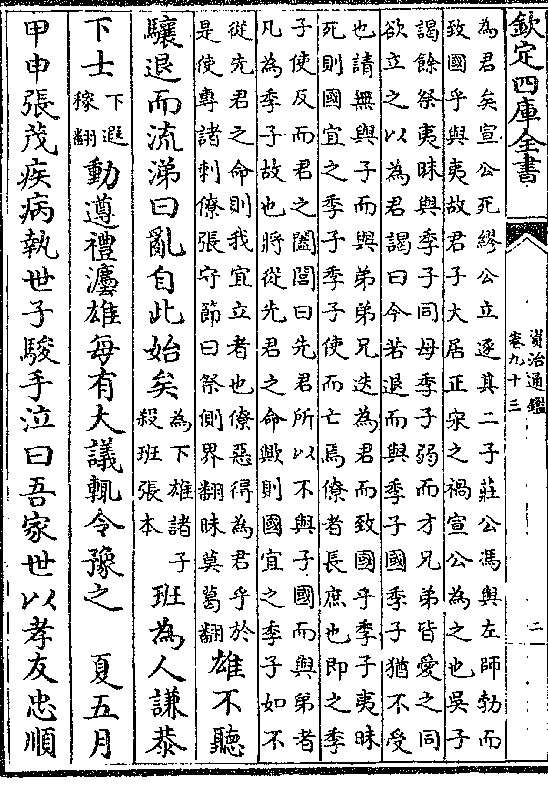 欽定四庫全書
資治通鑑
卷九十三
二
為君矣宣公死繆公立逐其二子莊公馮與左師勃而
致國乎與夷故君子大居正宋之禍宣公為之也吳子
謁餘祭夷昧與季子同母季子弱而才兄弟皆愛之同
欲立之以為君謁曰今若退而與季子國季子猶不受
也請無與子而與弟弟兄迭為君而致國乎季子夷昧
死則國宜之季子季子使而亡焉僚者長庶也即之季
子使反而君之闔閭曰先君所以不與子國而與弟者
凡為季子故也將從先君之命歟則國宜之季子如不
從先君之命則我宜立者也僚惡得為君乎於
是使專諸刺僚張守節曰祭側界翻昧莫葛翻
雄不聽
驤退而流涕曰亂自此始矣
為下雄諸子
殺班張本
班為人謙恭
下士
下遐
稼翻
動遵禮灋雄每有大議輒令豫之 夏五月
甲申張茂疾病執世子駿手泣曰吾家世以孝友忠順